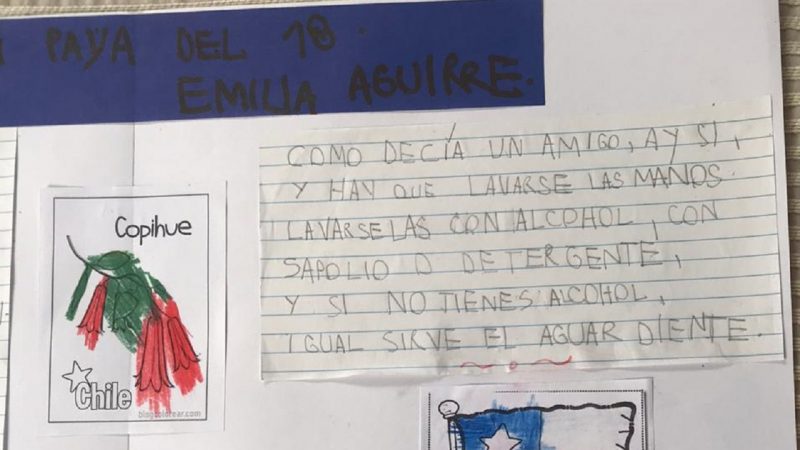 PAYA DEL 18.
EMILIA AGUIRRE.
COMO DECÍA UN AMIGO, AY SI,
Y HAY QUE LAVARSE LAS MANOS.
LAVARSELAS CON ALCOHOL, CON
SAPOLIO O DETERGENTE,
Y SI NO TIENES ALCOHOL,
IGUAL SIRVE EL AGUAR DIENTE.
Copihue
Chile
blogcolorear.com